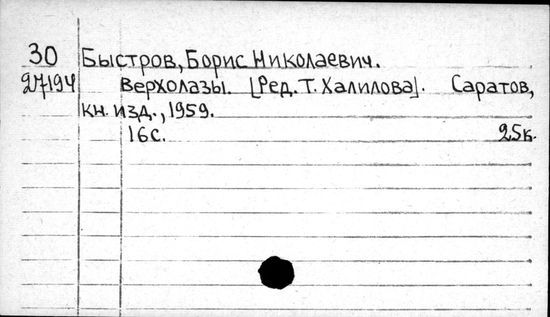 30 Быстров, Борис Николаевич.
27194 Верхолазы. [Ред. Т. Халилова]. Саратов,
кн. изд., 1959.
16 с. 25 к.